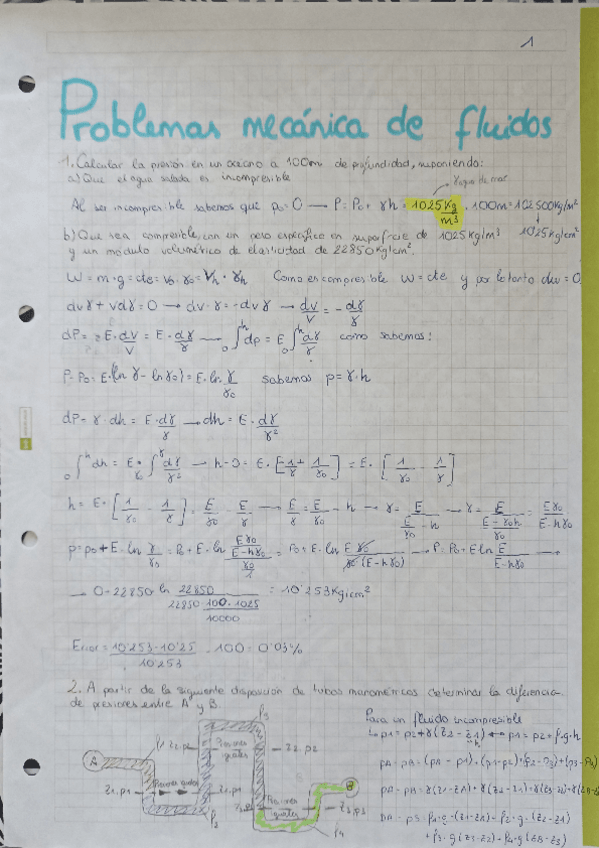 1
Problemas mecánica de fluidos
1. Calcular la presión en un oceano a 100m de profundidad, suponiendo:
a) Que el agua salada es incompresible
γagua de mar
Al ser incompresible sabemos que p₀=0 → P=P₀+γh = 1025 Kg/m³ · 100m = 102500Kg/m²
↓
10'25 Kg/cm²
b) Que sea compresible, con un peso específico en superficie de 1025 Kg/m³
y un módulo volumétrico de elasticidad de 22850 Kg/cm².
W = m·g = cte = V₀·γ₀ = Vh·γh Como es compresible W = cte y por lo tanto dw = 0
dvγ + vdγ = 0 → dv·γ = -dvγ → dv/V = -dγ/γ
dP = -E·dv/V = E·dγ/γ → ₀∫ʰ dp = E ₀∫ʰ dγ/γ como sabemos:
P-P₀ = E·(ln γ - ln γ₀) = E·ln γ/γ₀ sabemos p=γ·h
dP = γ·dh = E·dγ/γ → dh = E·dγ/γ²
₀∫ʰ dh = E·∫ dγ/γ² → h-0 = E·[-1/γ + 1/γ₀] = E·[1/γ₀ - 1/γ]
h = E·[1/γ₀ - 1/γ] = E/γ₀ - E/γ → E/γ = E/γ₀ - h → γ = E/(E/γ₀ - h) → γ = E/((E-γ₀h)/γ₀) = Eγ₀/(E-hγ₀)
p = p₀ + E·ln γ/γ₀ = P₀ + E·ln (Eγ₀/(E-hγ₀))/(γ₀/1) = P₀ + E·ln Eγ₀/(γ₀·(E-hγ₀)) → P = P₀ + E ln E/(E-hγ₀) →
→ 0-22850 ln 22850/(22850 · 100·1025/10000) = 10'253 Kg/cm²
Error = (10'253-10'25)/10'253 · 100 = 0'03%
2. A partir de la siguiente disposición de tubos manométricos determinar la diferencia
de presiones entre A y B.
Para un fluido incompresible
p₁ = p₂ + γ(z₂ - z₁) ↔ p₁ = p₂ + ρ·g·h
h
A
z₂.p₂
Presiones iguales
z₂.p₂
z₁.p₁
Presiones iguales
z₁.p₁
Presiones iguales
z₃.p₃
B